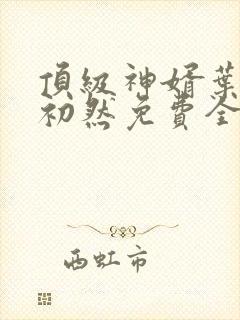 頂級神婿葉
初然免費全
西虹市